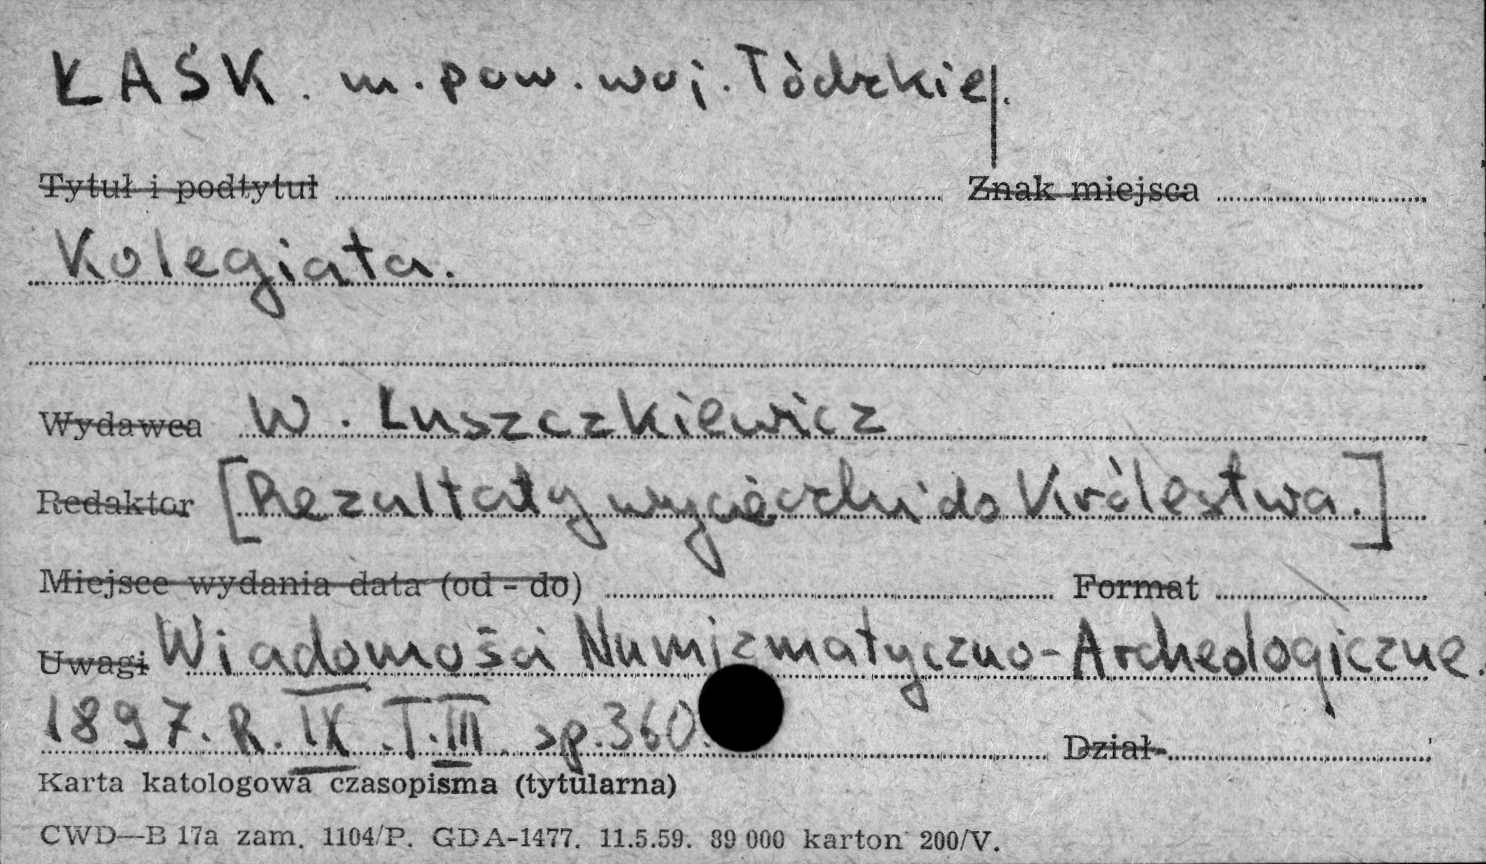 ŁAŚK. m. pow. woj. Tódzkie|.
Tytuł i podtytuł Znak miejsca
Kolegiata.
Wydawca W. Łuszczkiewicz
Redaktor [Rezultaty wycieczki do Królestwa.]
Miejsce wydania data (od - do) Format
Uwagi Wiadomości Numizmatyczno-Archeologiczne.
1897. R. IX. T. III. sp. 360.
Dział
Karta katologowa czasopisma (tytularna)
CWD—B 17a zam. 1104/P. GDA-1477. 11.5.59. 89 000 karton 200/V.